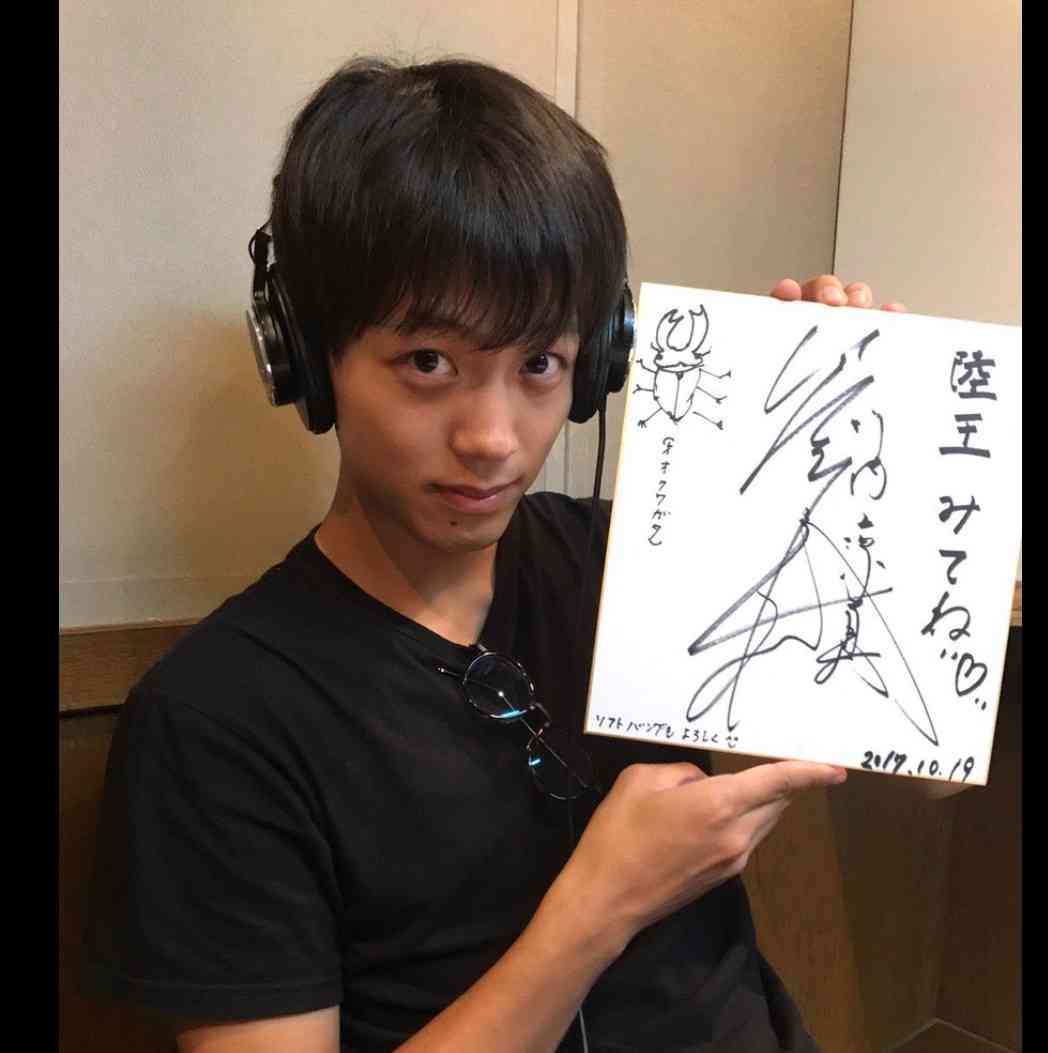 陸王 みてね♡
竹内涼真
オオクワガタ
ソフトバンクも よろしく
2017.10.19